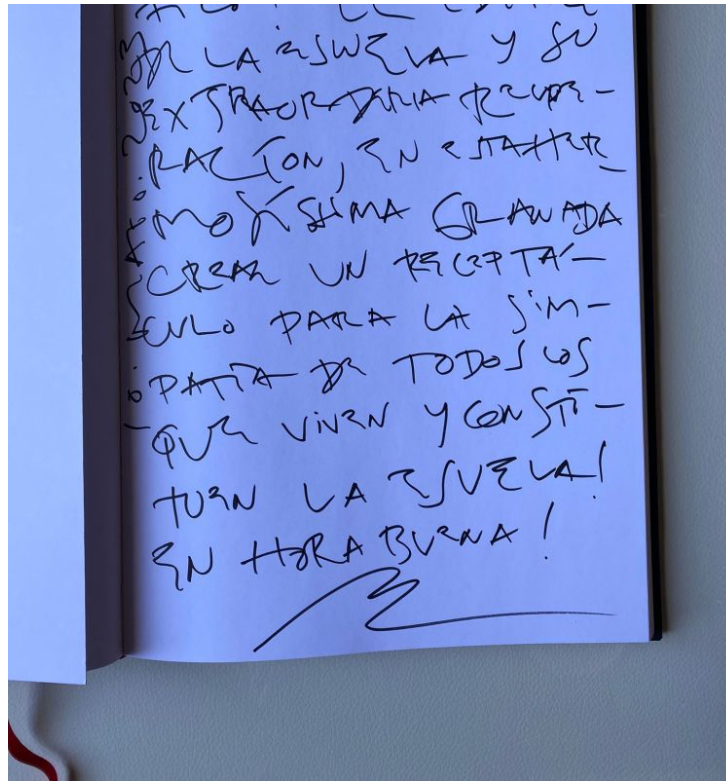 DE LA ESCUELA Y SU
EXTRAORDINARIA RECUPE-
RACIÓN, EN ESTA HER-
MOSÍSIMA GRANADA
CREAR UN RECEPTÁ-
CULO PARA LA SIM-
PATÍA DE TODOS LOS
QUE VIVEN Y CONSTI-
TUEN LA ESUELA!
EN HORA BUENA!